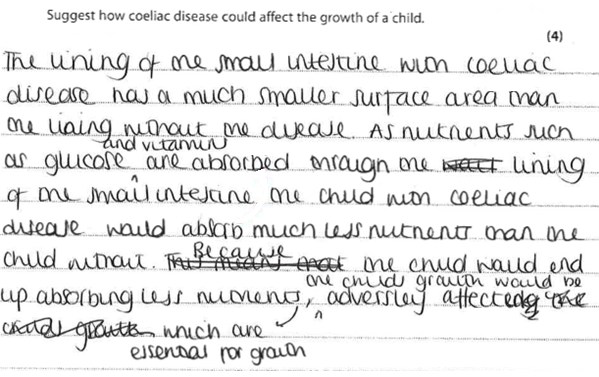 Suggest how coeliac disease could affect the growth of a child.
(4)
The lining of the small intestine with coeliac
disease has a much smaller surface area than
the lining without the disease. As nutrients such
as glucose and vitamins are absorbed through the lining
of the small intestine the child with coeliac
disease would absorb much less nutrients than the
child without. Because the child would end
up absorbing less nutrients, the childs growth would be adversley affected
which are
essential for growth